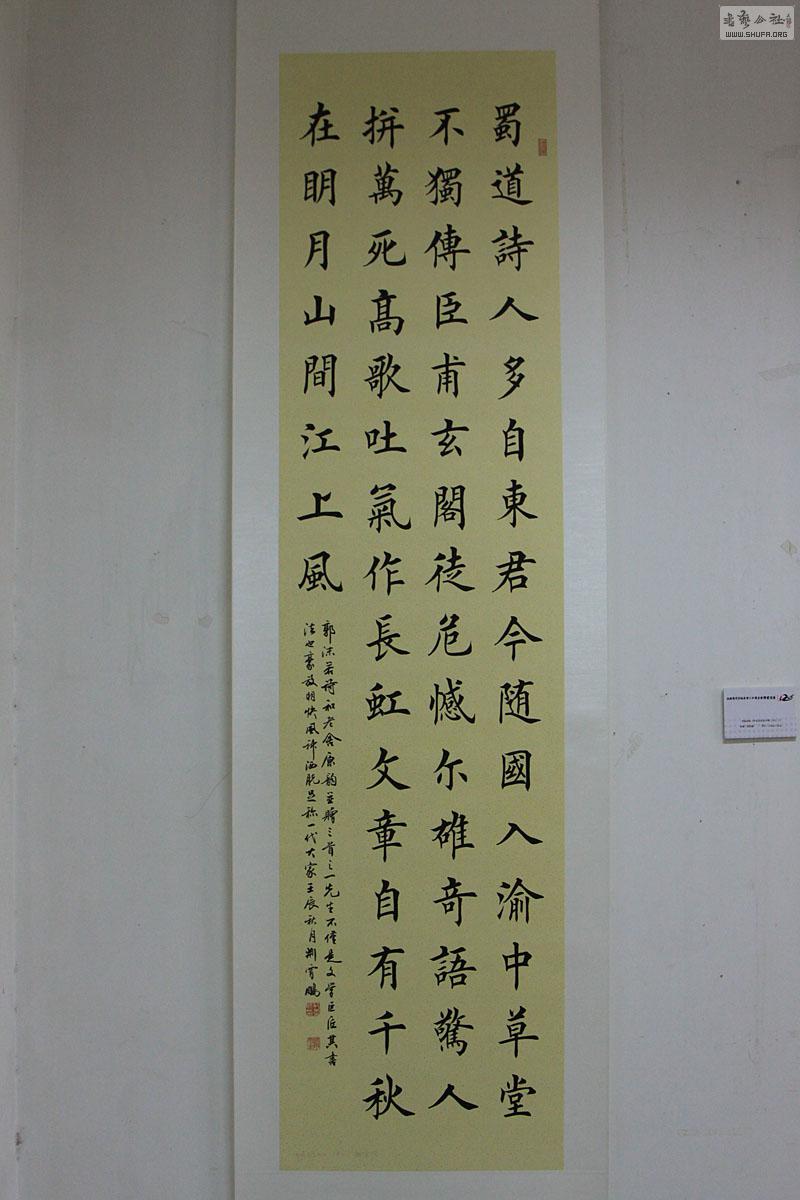 蜀道詩人多自東君今随國入渝中草堂
不獨傳臣甫玄閣徒危憾尔雄奇語驚人
拚萬死高歌吐氣作長虹文章自有千秋
在明月山間江上風
郭沫若詩和老舍原韵並贈三首之一先生不僅是文學巨匠其書
法也豪放明快風許洒脱足称一代大家壬辰秋月荆霄鵬
書艺公社
WWW.SHUFA.ORG